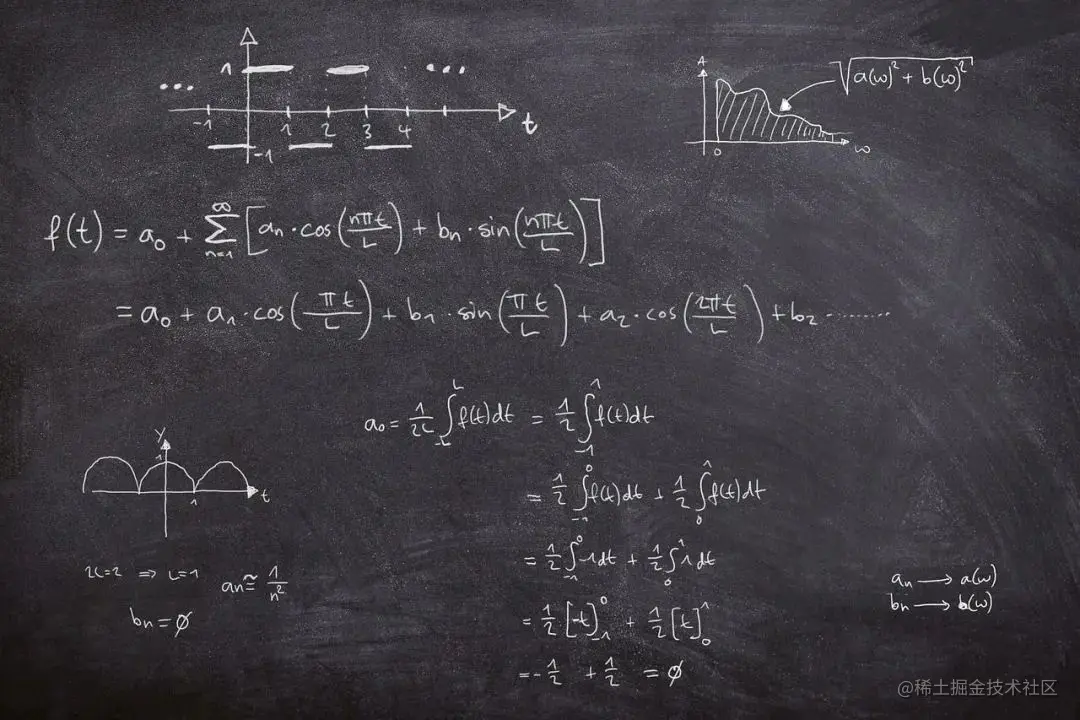 1
...
...
-1 1 2 3 4 t
-1
A
√a(ω)² + b(ω)²
0 ω
f(t) = a₀ + ∞∑n=1 [aₙ · cos(nπt/L) + bₙ · sin(nπt/L)]
= a₀ + a₁ · cos(πt/L) + b₁ · sin(πt/L) + a₂ · cos(2πt/L) + b₂ ········
a₀ = 1/2L ∫_{-L}^{L} f(t)dt = 1/2 ∫_{-1}^{1} f(t)dt
= 1/2 ∫_{-1}^{0} f(t)dt + 1/2 ∫_{0}^{1} f(t)dt
= 1/2 ∫_{-1}^{0} -1dt + 1/2 ∫_{0}^{1} 1dt
= 1/2 [-t]_{-1}^{0} + 1/2 [t]_{0}^{1}
= -1/2 + 1/2 = ∅
y
1
1 t
2L=2 ⇒ L=1
aₙ ≅ 1/n²
bₙ = ∅
aₙ → a(ω)
bₙ → b(ω)
@稀土掘金技术社区